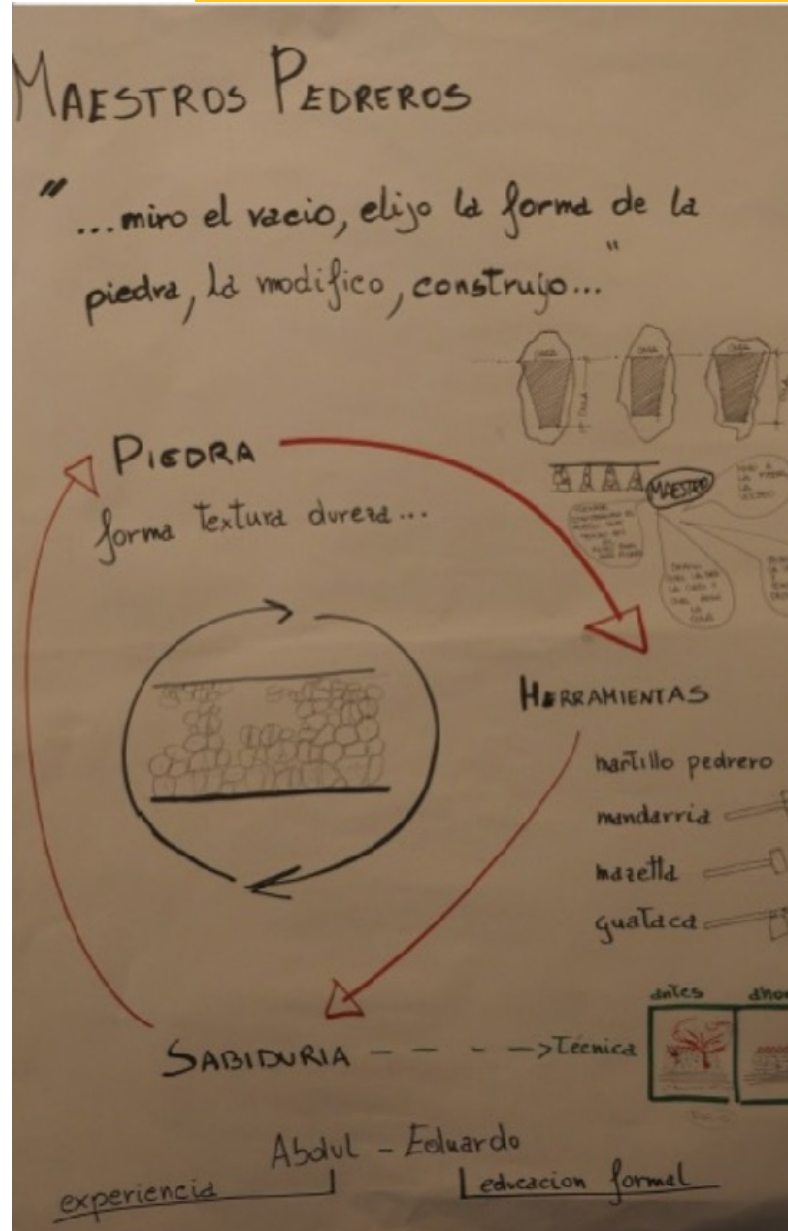 MAESTROS PEDREROS
" ...miro el vacio, elijo la forma de la
piedra, la modifico, construyo..."
CARA
CARA
CARA
COLA
COLA
PIEDRA
forma textura dureza...
MAESTRO
HERRAMIENTAS
martillo pedrero
mandarria
mazetta
guataca
antes
SABIDURIA - - - -> Técnica
Abdul - Eduardo
experiencia
educacion formal